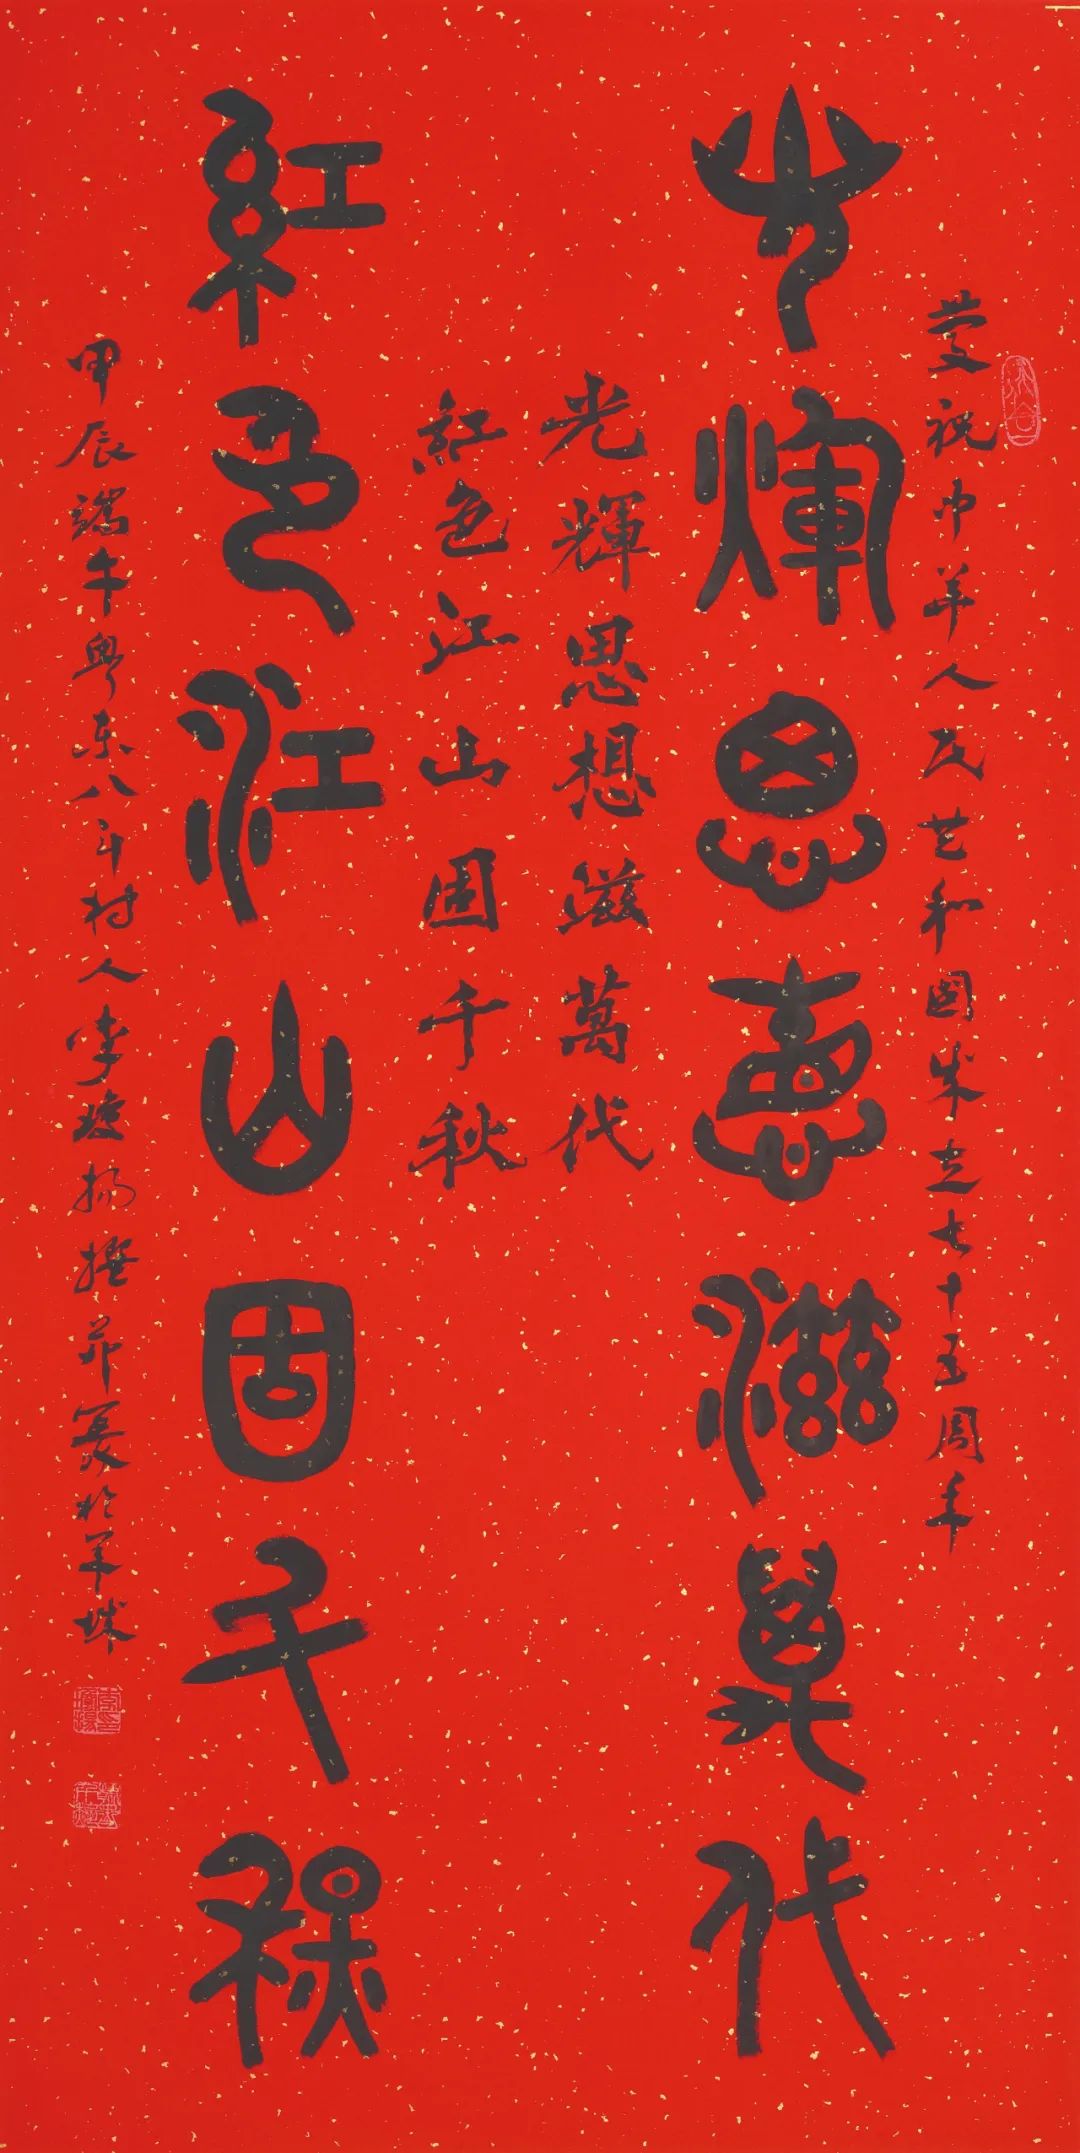 慶祝中華人民共和國成立七十五周年
光煇思想滋萬代
光輝思想滋萬代
紅色江山固千秋
紅色江山固千秋
甲辰端午粵東八斗村人李揚撰並篆於羊城